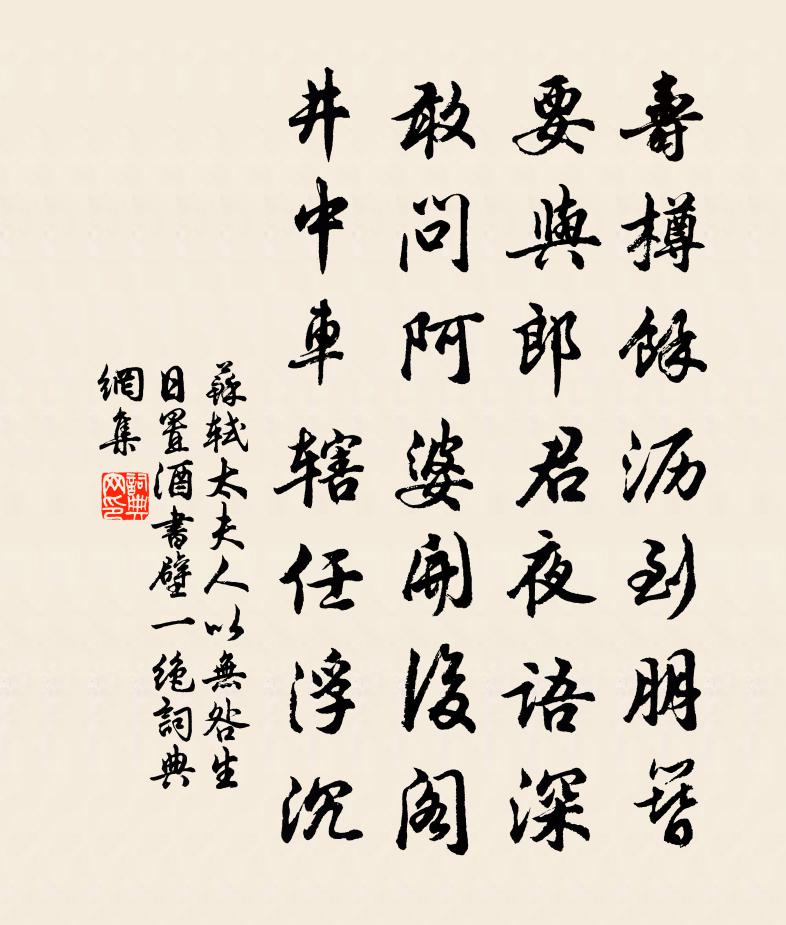 壽樽餘瀝到朋簪
要與郎君夜語深
敢問阿婆開後閣
井中車轄任浮沉
蘇軾太夫人以無咎生
日置酒書壁一絕詞典
網集
詞典
网印